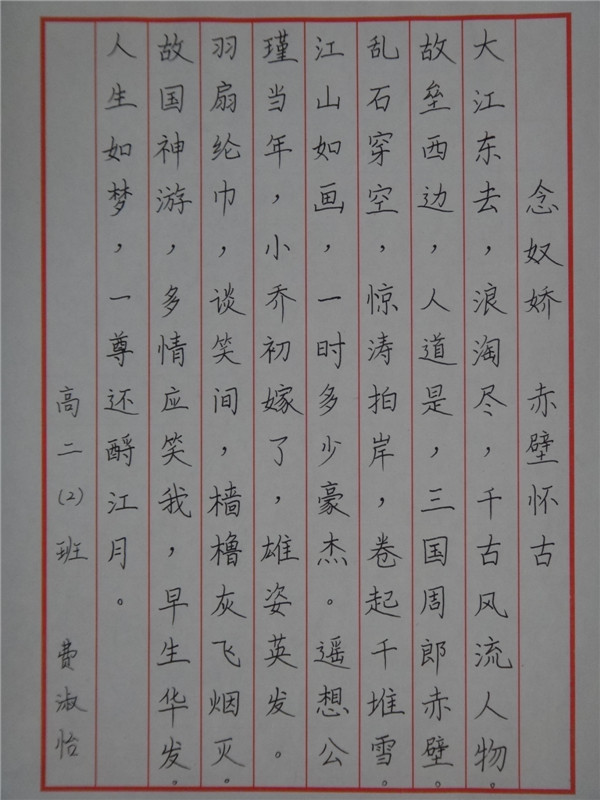 念奴娇 赤壁怀古
大江东去，浪淘尽，千古风流人物。
故垒西边，人道是，三国周郎赤壁。
乱石穿空，惊涛拍岸，卷起千堆雪。
江山如画，一时多少豪杰。遥想公
瑾当年，小乔初嫁了，雄姿英发。
羽扇纶巾，谈笑间，樯橹灰飞烟灭。
故国神游，多情应笑我，早生华发。
人生如梦，一尊还酹江月。
高二(2)班 费淑怡